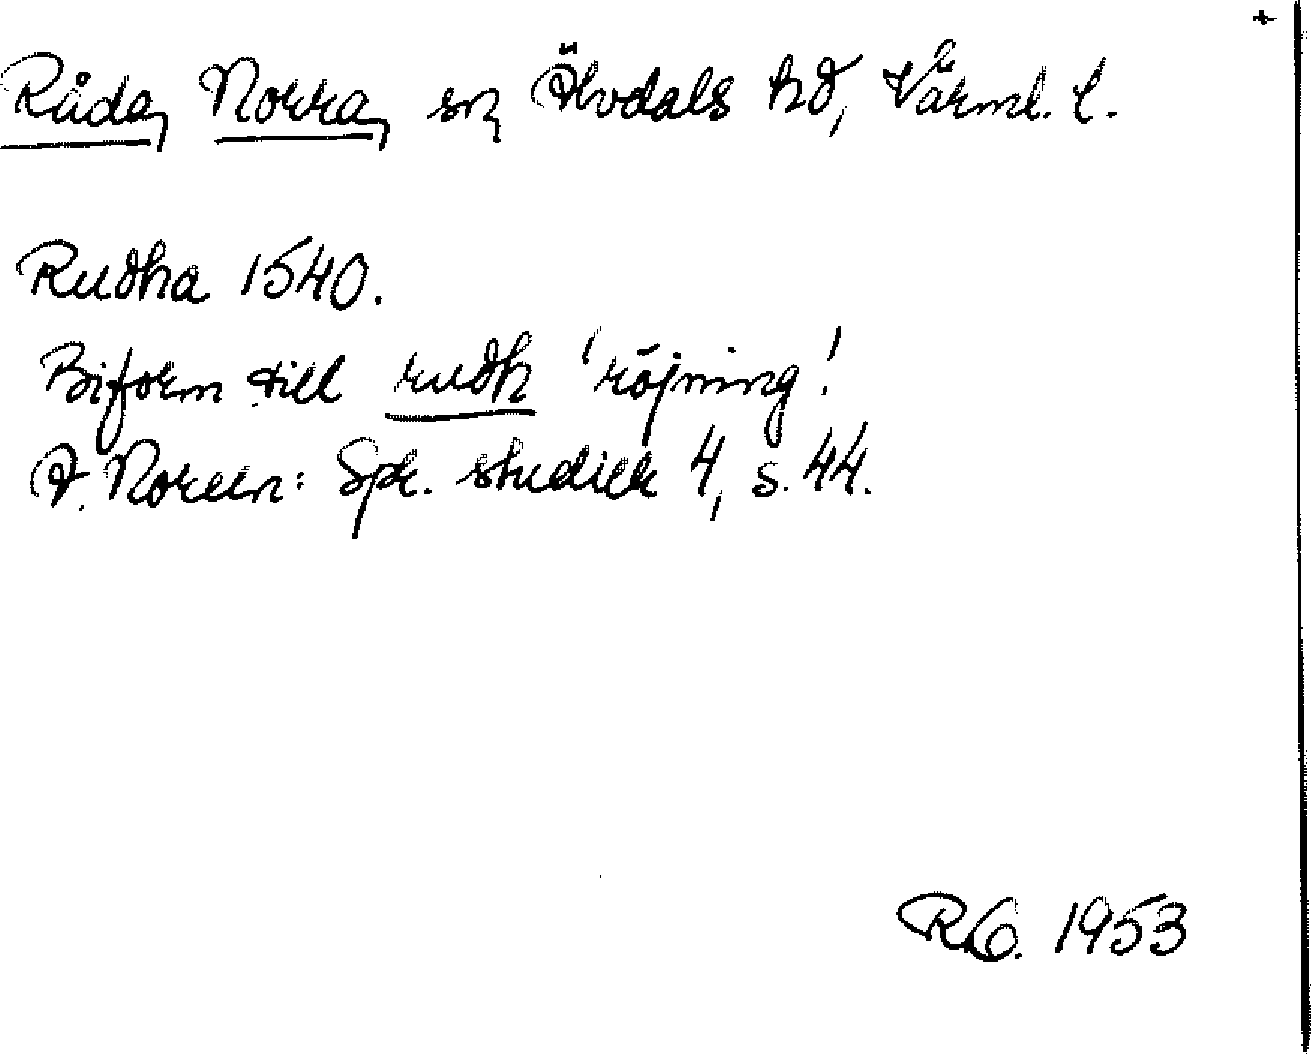 +
Råda, Norra, sn, Älvdals hd, Värml. l.
Rudha 1540.
Biform till rudh 'röjning'.
A. Noreen: Spr. studier 4, s. 44.
1953